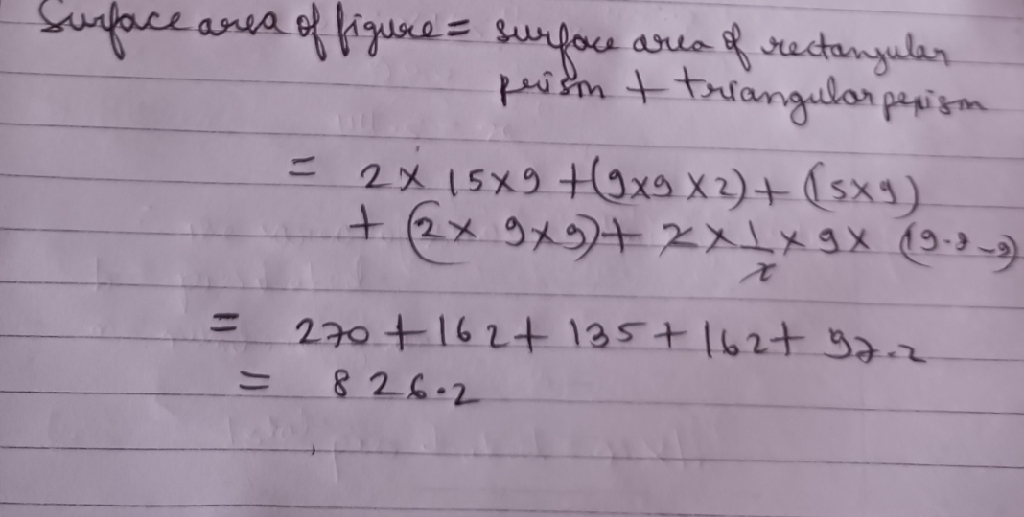 Surface area of figure = surface area of rectangular
prism + triangular prism
= 2 × 15×9 + (9×9×2) + (15×9)
+ (2× 9×9) + 2 × 1/2 × 9 × (19.8-9)
= 270 + 162 + 135 + 162 + 97.2
= 826.2